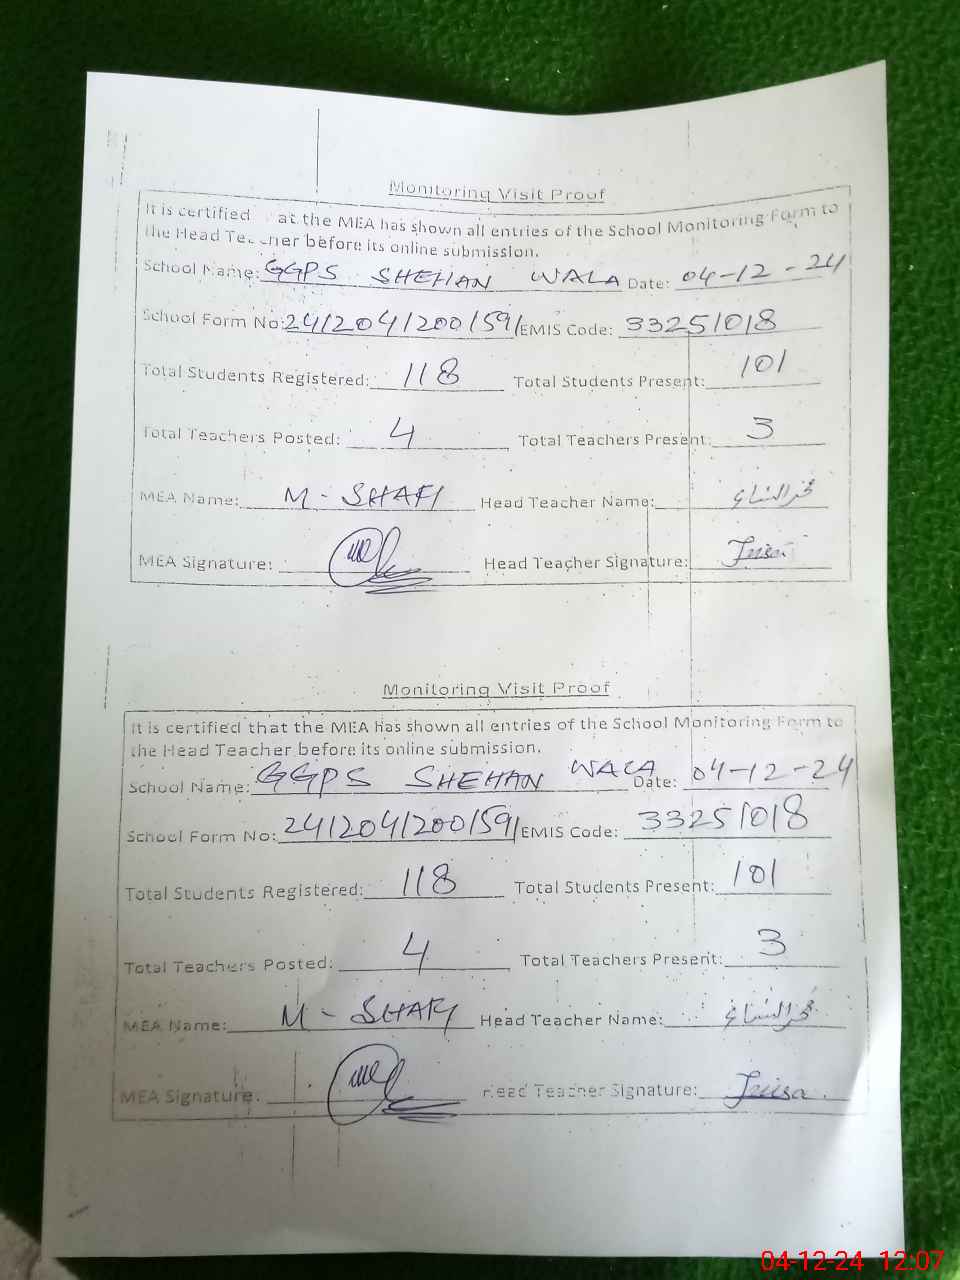 Monitoring Visit Proof
It is certified at the MEA has shown all entries of the School Monitoring Form to
the Head Teacher before its online submission.
School Name: GGPS SHEHAN WALA Date: 04-12-24
School Form No: 24120412001591 EMIS Code: 33251018
Total Students Registered: 118 Total Students Present: 101
Total Teachers Posted: 4 Total Teachers Present: 3
MEA Name: M - SHAFI Head Teacher Name: فخرالنساء
MEA Signature: Head Teacher Signature:
Monitoring Visit Proof
It is certified that the MEA has shown all entries of the School Monitoring Form to
the Head Teacher before its online submission.
School Name: GGPS SHEHAN WALA Date: 04-12-24
School Form No: 24120412001591 EMIS Code: 33251018
Total Students Registered: 118 Total Students Present: 101
Total Teachers Posted: 4 Total Teachers Present: 3
MEA Name: M - SHAFI Head Teacher Name: فخرالنساء
MEA Signature: Head Teacher Signature:
04-12-24 12:07